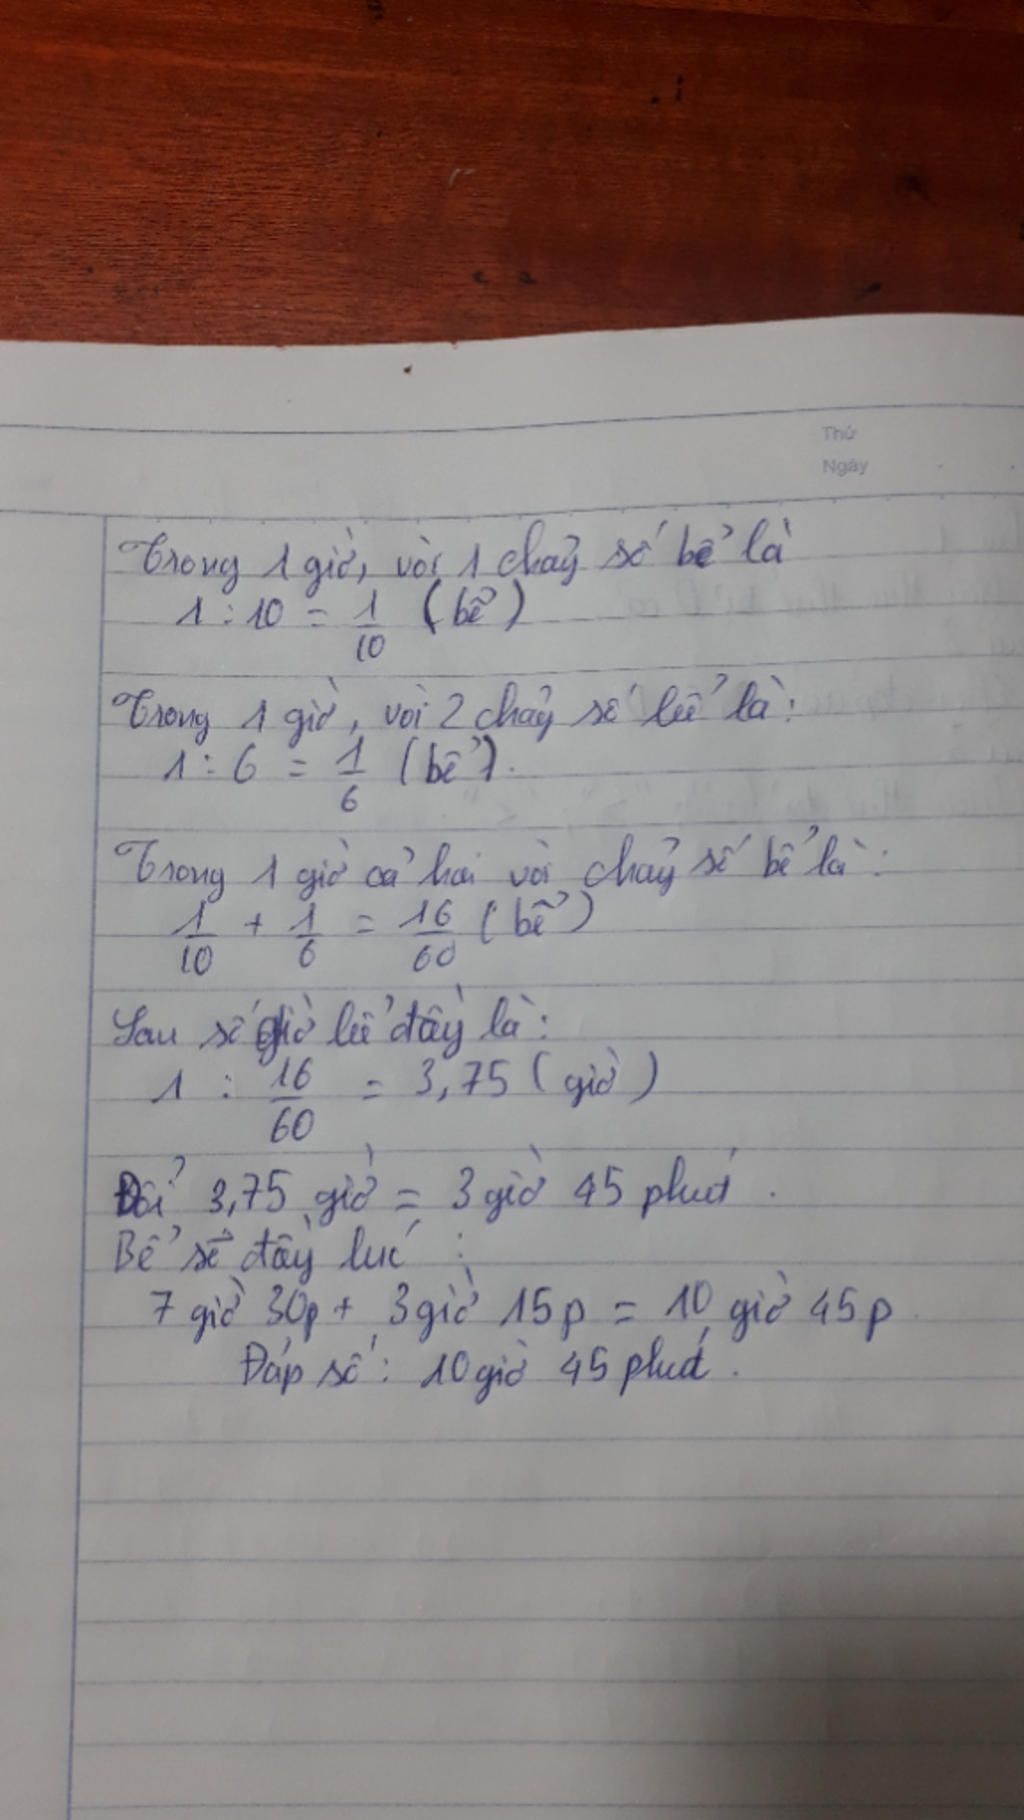 Thứ
Ngày
Trong 1 giờ, vòi 1 chảy số bể là
1 : 10 = 1/10 (bể)
Trong 1 giờ, vòi 2 chảy số bể là:
1 : 6 = 1/6 (bể).
Trong 1 giờ cả hai vòi chảy số bể là:
1/10 + 1/6 = 16/60 (bể)
Sau số giờ bể đầy là:
1 : 16/60 = 3,75 (giờ)
Đổi 3,75 giờ = 3 giờ 45 phút.
Bể sẽ đầy lúc :
7 giờ 30p + 3 giờ 15p = 10 giờ 45p
Đáp số: 10 giờ 45 phút.